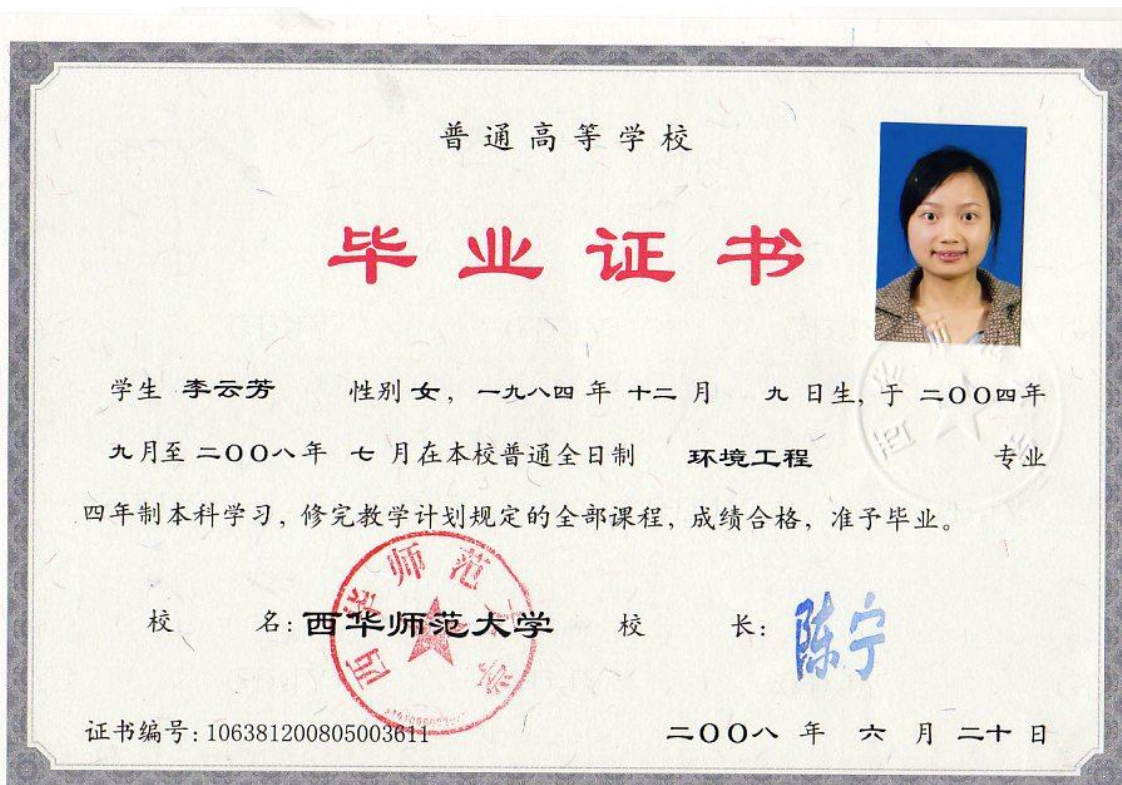 普通高等学校
毕业证书
学生 李云芳 性别 女, 一九八四 年 十二 月 九 日生, 于 二〇〇四年
九月至 二〇〇八年 七 月在本校普通全日制 环境工程 专业
四年制本科学习, 修完教学计划规定的全部课程, 成绩合格, 准予毕业。
西华师范大学
校 名: 西华师范大学 校 长: 陈宁
证书编号: 106381200805003611 二〇〇八 年 六 月 二十 日